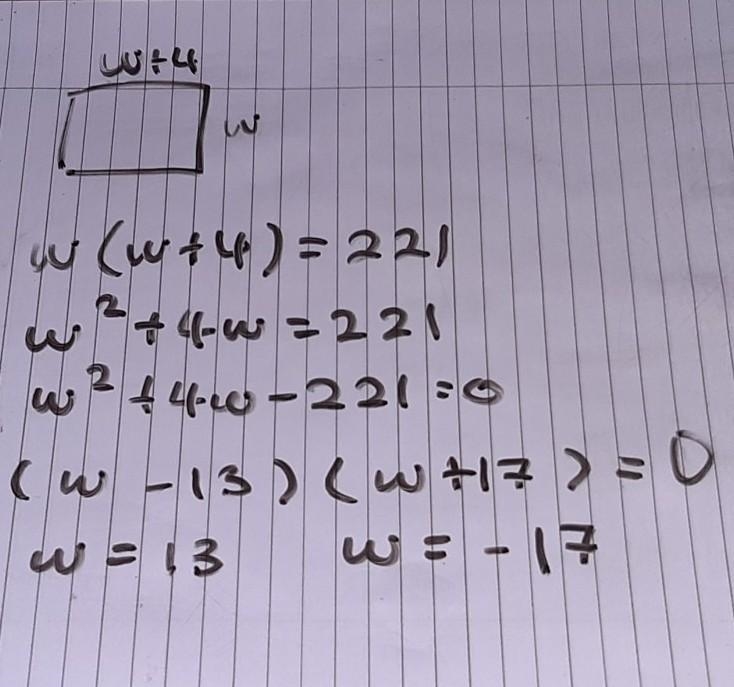 w+4
w
w(w+4)=221
w²+4w=221
w²+4w-221=0
(w-13)(w+17)=0
w=13 w=-17